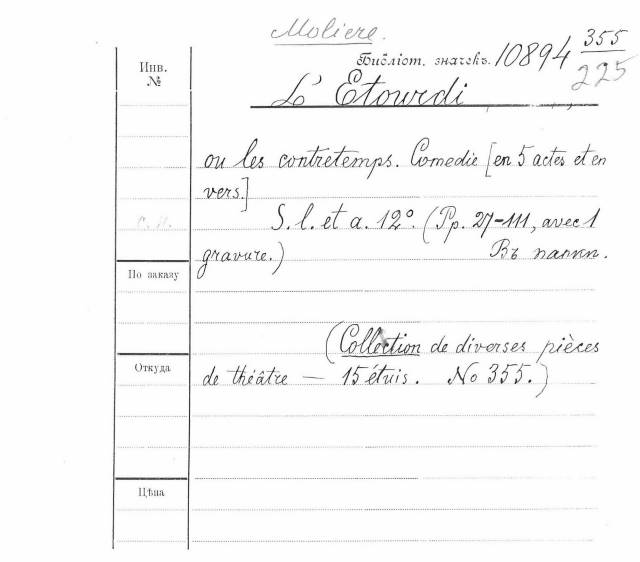 Moliere.
Библіот. значекъ. 10894 355/225
Инв.
№
L' Etourdi
ou les contretemps. Comedie [en 5 actes et en
vers.]
S. l. et a. 12°. (Pp. 27-111, avec 1
gravure.) Въ папкѣ.
По заказу
(Collection de diverses pièces
Откуда
de théâtre — 15 étuis. No 355.)
Цѣна